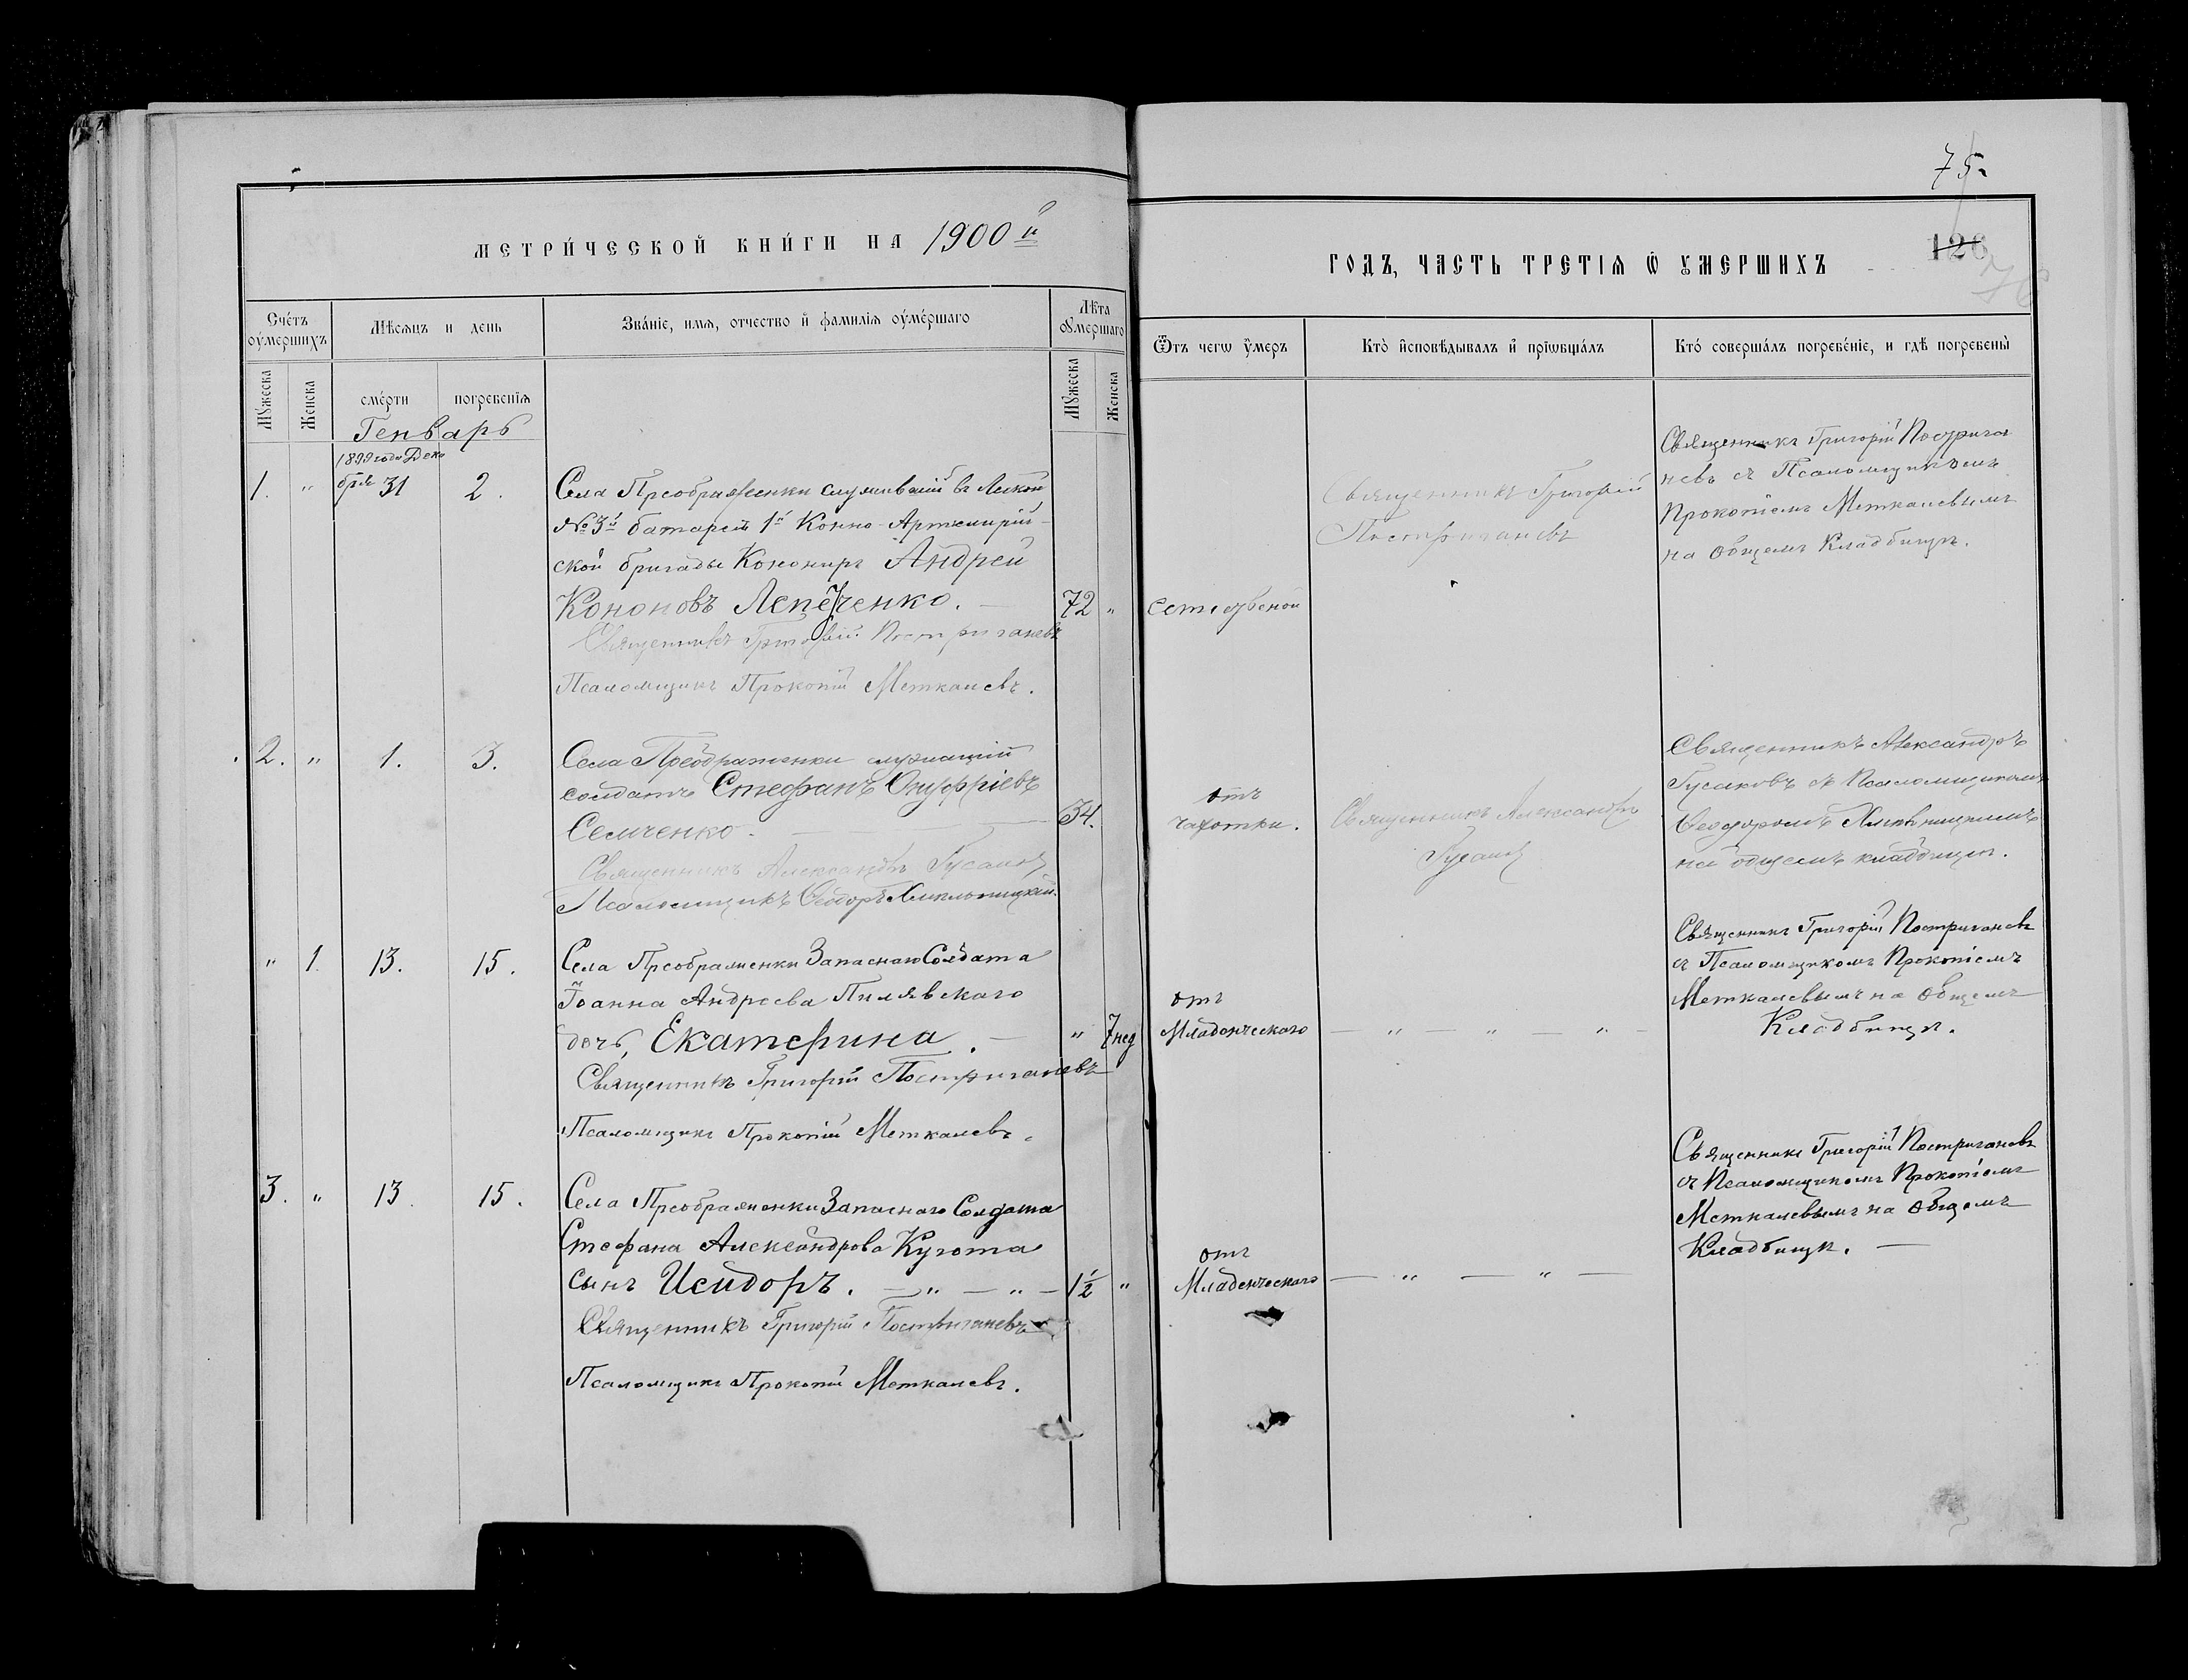 75.
126
76
МЕТРИ́ЧЕСКОЙ КНИ́ГИ НА 1900й
ГОДЪ, ЧАСТЬ ТРЕТІѦ Ѡ ОУМЕРШИХЪ
Сче́тъ оу́мершихъ
Мѣсяцъ и день
Зва́нїе, имя, отчество и҆ фамилїя оу́ме́ршаго
Лѣта оу́мершаго
Ѿъ чегѡ оу҆меръ
Кто̀ и҆сповѣдывалъ и҆ прїѡбща́лъ
Кто́ соверша́лъ погребе́нїе, и гдѣ погребены̀
Мꙋжеска
Женска
сме́рти
погребенїя
Мꙋжеска
Женска
Генварь
1899 года Дека
бря 31
1. " 2.
Села Преображенки служившій въ Легкой
№ 3й батареѣ 1й Конно-Артилерій-
ской бригады Канониръ Андрей
Кононовъ Лепеченко. 72 "
Священникъ Григорій Постригачевъ
Псаломщикъ Прокопій Меткалевъ.
Естественой
Священникъ Григорій
Постригачевъ
Священникъ Григорій Постригa
чевъ съ Псаломщикомъ
Прокопіемъ Меткалевымъ
на общемъ Кладбищѣ.
2. " 1. 3.
Села Преображенки служащій
солдатъ Стефанъ Онуфріевъ
Семченко. 34.
Священникъ Александръ Гусаковъ
Псаломщикъ Ѳеодоръ
отъ
чахотки.
Священникъ Александръ
Гусаковъ
Священникъ Александръ
Гусаковъ съ Псаломщикомъ
Ѳеодоромъ
на общемъ кладбищѣ.
" 1. 13. 15.
Села Преображенки Запаснаго Солдата
Іоанна Андреева Пилявскаго
дочь, Екатерина. " 7 нед
Священникъ Григорій Постригачевъ
Псаломщикъ Прокопій Меткалевъ.
отъ
Младенческаго
— " — " — " —
Священникъ Григорій Постригачевъ
съ Псаломщикомъ Прокопіемъ
Меткалевымъ на Общемъ
Кладбищѣ.
3. " 13. 15.
Села Преображенки Запаснаго Солдата
Стефана Александрова Кугота
сынъ Исидоръ. — " — " — 1½ "
Священникъ Григорій Постригачевъ
Псаломщикъ Прокопій Меткалевъ.
отъ
Младенческаго
— " — " —
Священникъ Григорій Постригачевъ
съ Псаломщикомъ Прокопіемъ
Меткалевымъ на Общемъ
Кладбищѣ. —